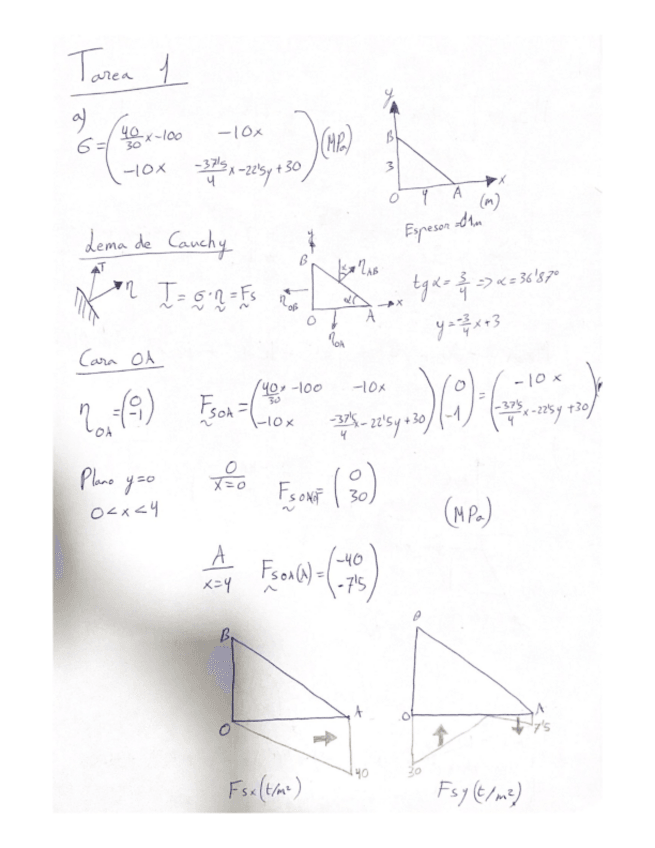 Tarea 1
a)
σ = ( 40/30 x-100   -10x ; -10x   -37'5/4 x-22'5y+30 ) (MPa)
y
B
3
O 4 A x
(m)
Espesor = 
Lema de Cauchy
T η
T = σ·η = Fs
y
B
η_AB
η_OB
α
O A x
η_OA
tg α = 3/4 => α = 36'87°
y = -3/4 x + 3
Cara OA
η_OA = (0 ; -1)
F_SOA = ( 40/30 x -100   -10x ; -10x   -37'5/4 x-22'5y+30 ) ( 0 ; -1 ) = ( -10x ; -37'5/4 x-22'5y+30 )
Plano y=0
0<x<4
O
x=0
= ( 0 ; 30 )
(MPa)
A
x=4
F_SOA(A) = ( -40 ; -7'5 )
B
O A
40
Fsx (t/m²)
B
O A
7'5
30
Fsy (t/m²)